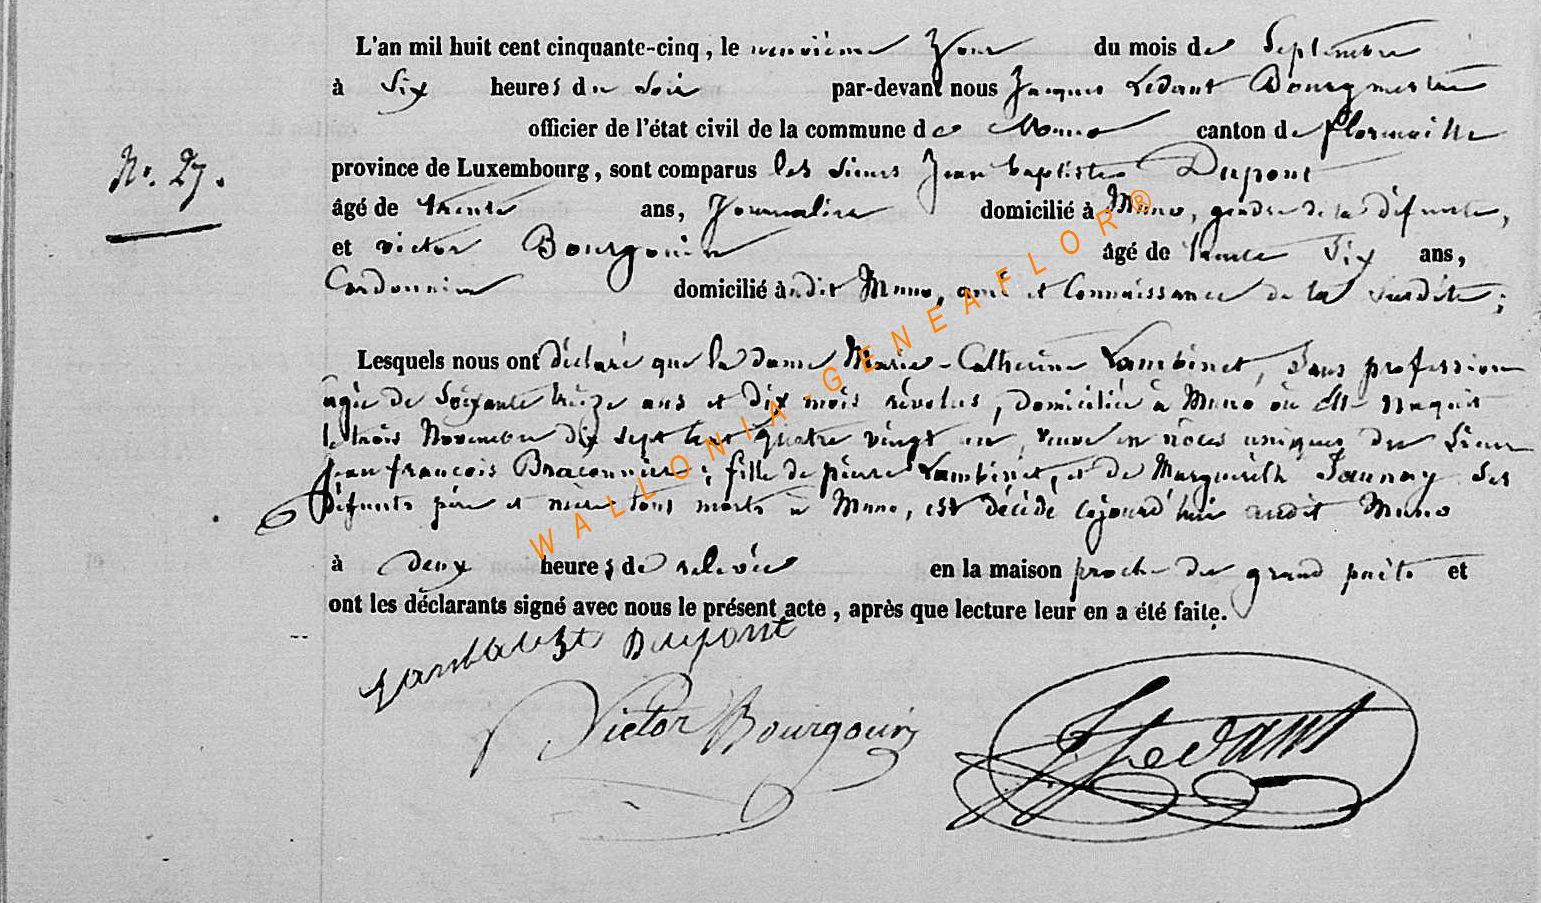 L'an mil huit cent cinquante-cinq, le neuvième Jour du mois de Septembre
à Six heures du Soir par-devant nous Jacques Ledant Bourgmestre
officier de l'état civil de la commune de Muno canton de florenville
province de Luxembourg, sont comparus les Sieurs Jean baptiste Dupont
N°. 27.
âgé de trente ans, Journalier domicilié à Muno, gendre de la défunte,
et victor Bourgouin âgé de trente Six ans,
Cordonnier domicilié audit Muno, ami et Connaissance de la susdite;
Lesquels nous ont déclaré que la dame Marie-Catherine Lambinet, Sans profession
agée de Soixante treize ans et dix mois révolus, domiciliée à Muno où elle Naquit
le trois Novembre dix sept cent quatre vingt un, veuve en nôces uniques du Sieur
Jean françois Braconnier; fille de pierre Lambinet, et de Marguerith Jaunay Ses
défunts père et mère tous morts à Muno, est décédé cejourd'hui audit Muno
à deux heures de relevée en la maison proche du grand puits et
ont les déclarants signé avec nous le présent acte, après que lecture leur en a été faite.
Dupont
Victor Bourgouin
JLedant
WALLONIA-GENEAFLOR®